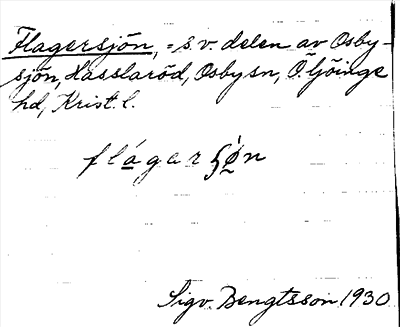 Flagersjön, = s.v. delen av Osby-
sjön, Hasslaröd, Osby sn, Ö. Göinge
hd, Krist. l.
flágar ʂø̀n
Sigv. Bengtsson 1930